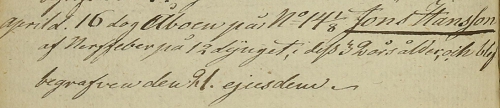 April d. 16 dog Åboen på N:o 14 1/8 Jöns Hansson
af Nerffeber på 12 dygnet, dess 32 års ålder, och blef
begrafven den 21. ejusdem.